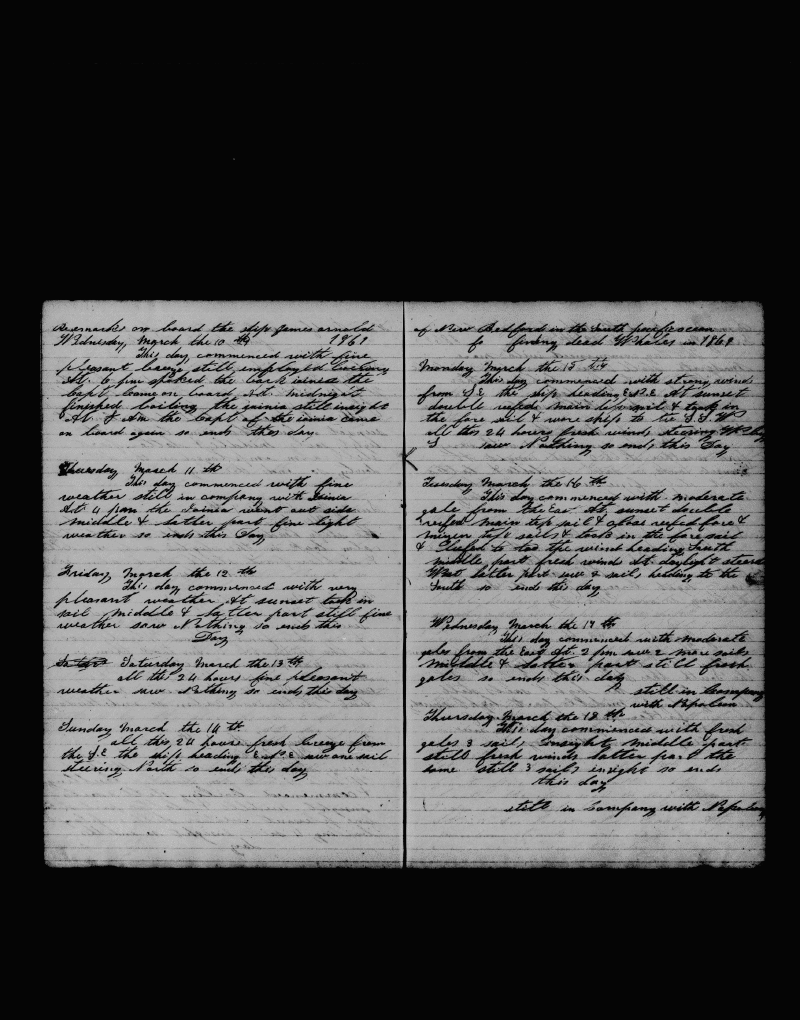 Remarks on board the ship James arnold
Wednesday March the 10 th 1869
This day commenced with fine
pleasant breeze still employed boiling
At. 6 pm spoked the bark the
Capt came on board At. midnight
finished boiling the still insight
At. 8 Am the Capt of the came
on board again so ends this day
Thursday March 11 th
This day commenced with fine
weather still in company with
At. 4 pm the went out side
middle & latter part fine light
weather so ends this Day
Friday March the 12 th
This day commenced with very
pleasant weather At sunset took in
sail middle & latter part still fine
weather saw Nothing so ends this
Day
Saturday March the 13 th
all the 24 hours fine pleasant
weather saw Nothing so ends this day
Sunday March the 14 th
all this 24 hours fresh breeze from
the S.E the ship heading E.N.E saw one sail
steering North so ends this day
of New Bedford in the South pacific ocean
fo finding dead Whales in 1869
Monday March the 15 th
This day commenced with strong winds
from S.E the ship heading E.N.E At sunset
double reefed main top sail & took in
the fore sail & wore ship to the S.S.W
all this 24 hours fresh winds steering
S saw Nothing so ends this Day
Tuesday March the 16 th
This day commenced with moderate
gale from the Ea At. sunset double
reefed main top sail & close reefed fore &
mizen top sails & took in the fore sail
& Luffed to too the wind heading South
middle part fresh winds At. daylight steard
West latter part saw 2 sails heading to the
South so ends this day
Wednesday March the 17 th
This day commenced with moderate
gales from the East At. 2 pm saw 2 more sails
middle & latter part still fresh
gales so ends this day
still in Company
with Napolein
Thursday March the 18 th
This day commenced with fresh
gales 3 sails insight middle part
still fresh winds latter part the
same still 3 sails insight so ends
this day
still in Company with